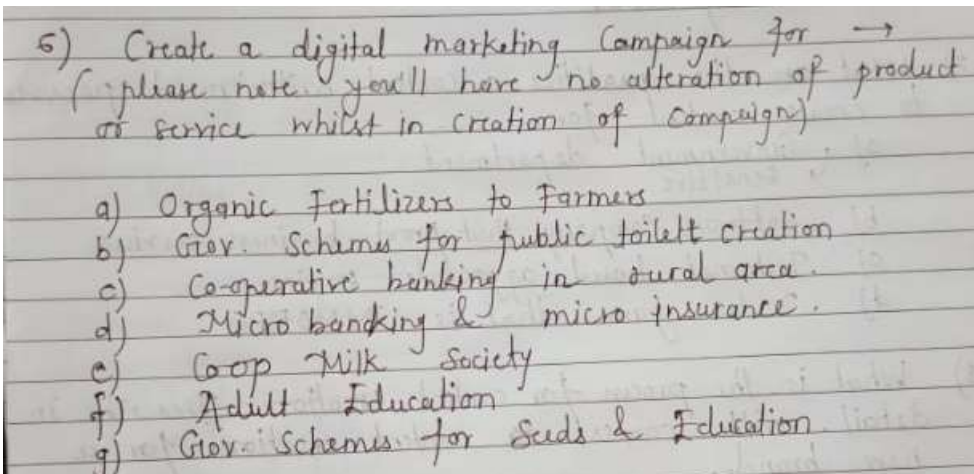 5) Create a digital marketing Campaign for →
( please note you'll have no alteration of product
or service whilst in creation of campaign)
a) Organic Fertilizers to Farmers
b) Gov. Schemes for public toilett creation
c) Co-operative banking in rural area.
d) Micro bancking & micro insurance.
e) Coop Milk Society
f) Adult Education
g) Gov. Schemes for Seeds & Education